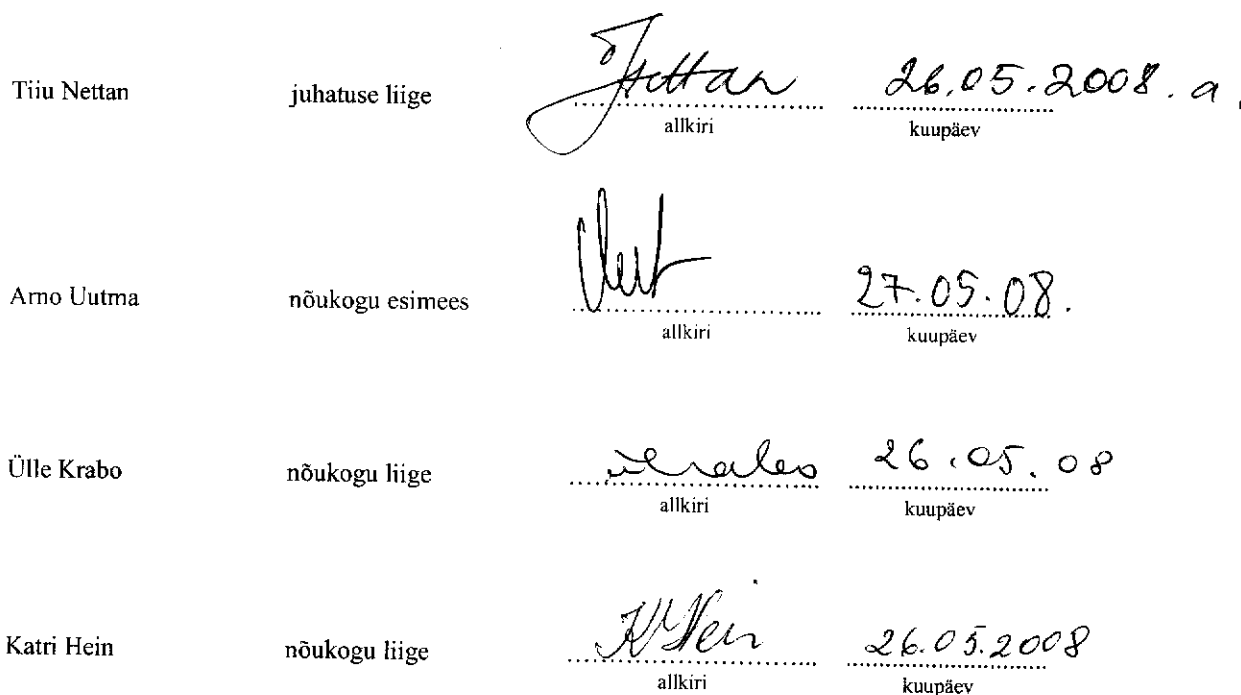 Tiiu Nettan juhatuse liige JNettan 26.05.2008. a.
allkiri kuupäev
Arno Uutma nõukogu esimees 27.05.08.
allkiri kuupäev
Ülle Krabo nõukogu liige 26.05.08
allkiri kuupäev
Katri Hein nõukogu liige KHein 26.05.2008
allkiri kuupäev